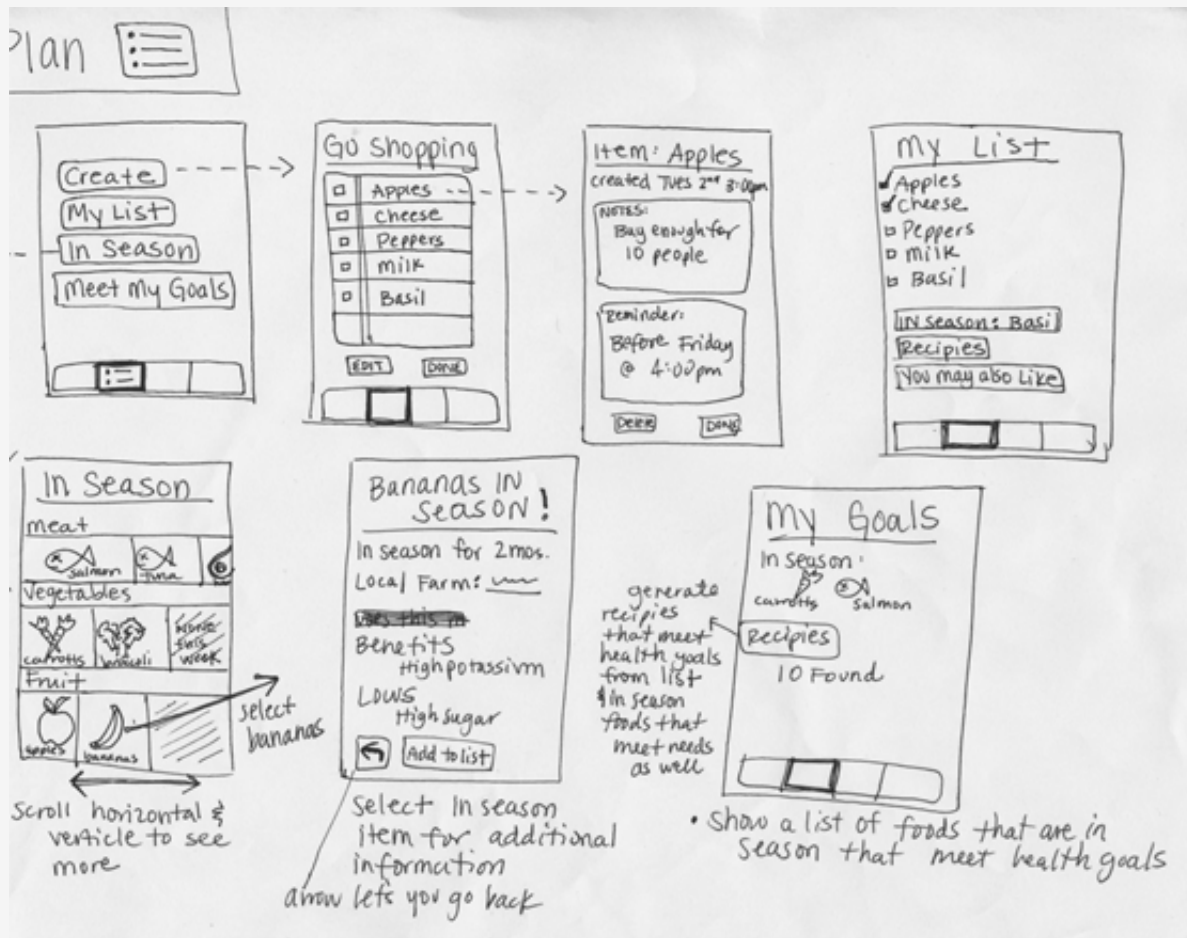 Plan
Create
My List
In Season
Meet my Goals
Go Shopping
Apples
cheese
Peppers
milk
Basil
EDIT
DONE
Item: Apples
created Tues 2nd 3:00pm
NOTES:
Buy enough for
10 people
Reminder:
Before Friday
@ 4:00pm
Delete
DONE
My List
Apples
Cheese
Peppers
milk
Basil
IN season: Basi
Recipies
You may also Like
In Season
meat
salmon
tuna
Vegetables
carrotts
NONE
this
week
Fruit
apples
bananas
select
bananas
Scroll horizontal &
verticle to see
more
Bananas IN
SEASON!
In season for 2mos.
Local Farm:
Benefits
High potassium
Lows
High sugar
Add to list
Select In season
item for additional
information
arrow lets you go back
My Goals
In season:
carrotts
Salmon
Recipies
10 Found
generate
recipies
that meet
health goals
from list
& in season
foods that
meet needs
as well
• Show a list of foods that are in
season that meet health goals